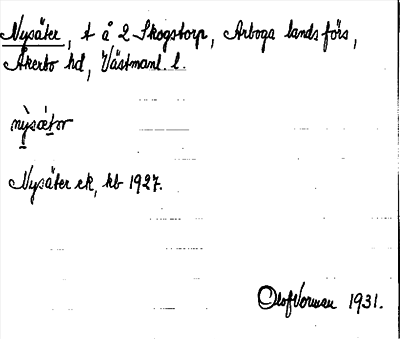 Nysäter, t å 2 Skogstorp, Arboga landsförs,
Åkerbo hd, Västmanl. l.
nỳsætər
Nysäter ek, kb 1927.
Olof Vorman 1931.